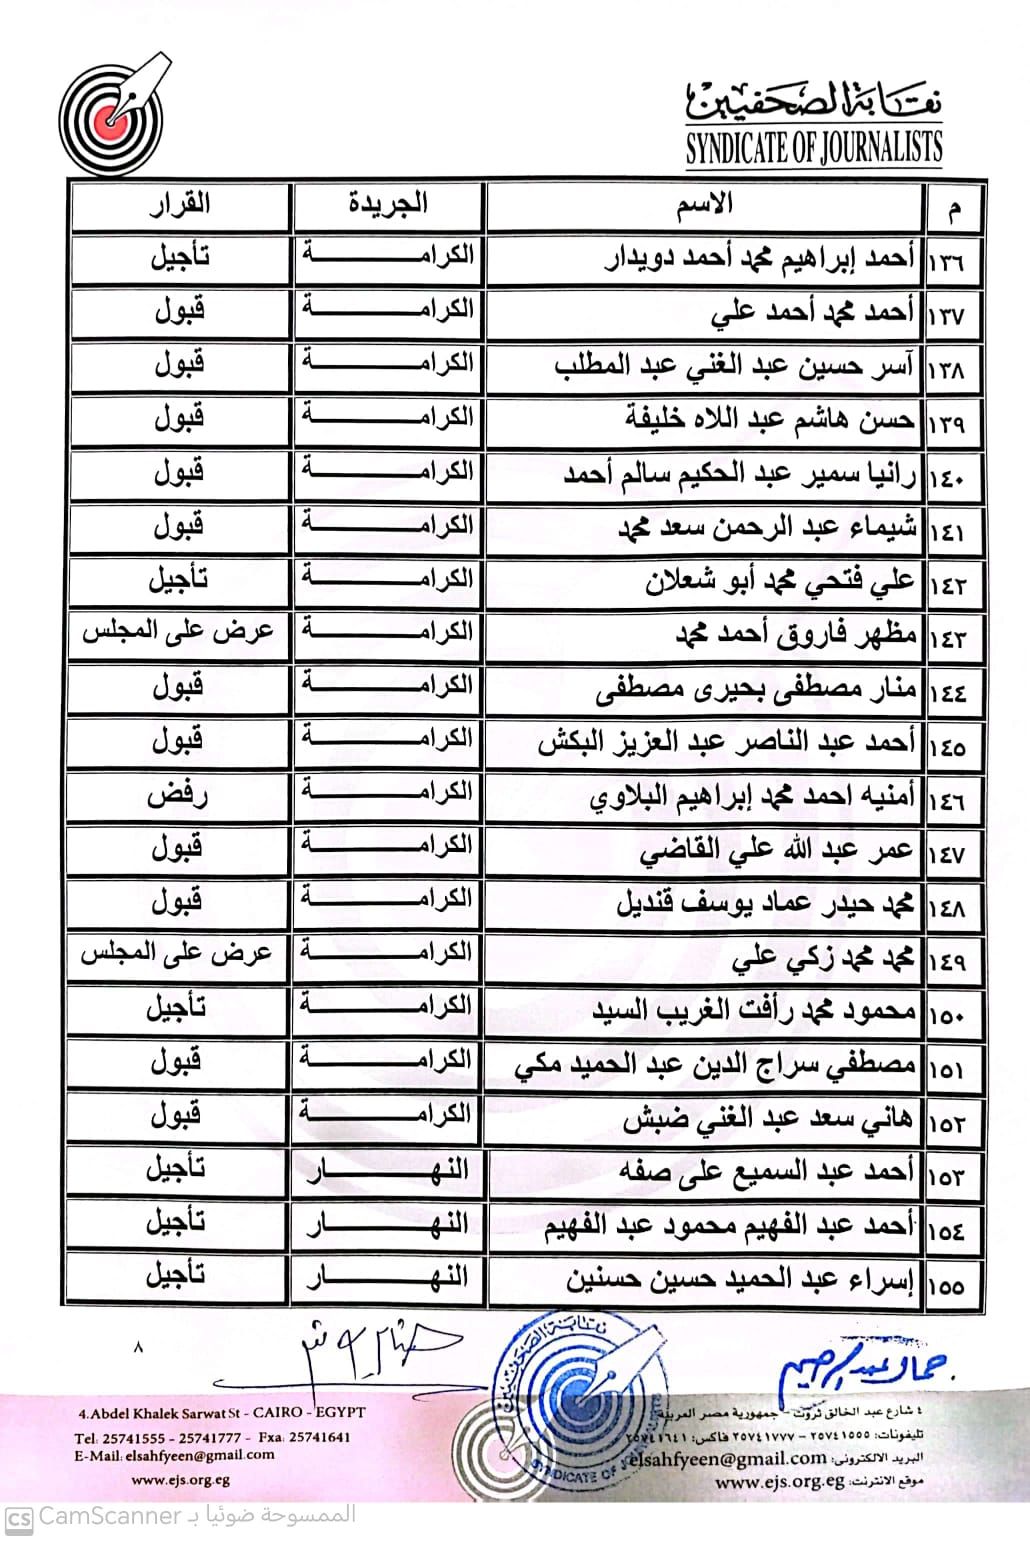 نقابة الصحفيين
SYNDICATE OF JOURNALISTS
م الاسم الجريدة القرار
١٣٦ أحمد إبراهيم محمد أحمد دويدار الكرامـــة تأجيل
١٣٧ أحمد محمد أحمد علي الكرامـــة قبول
١٣٨ آسر حسين عبد الغني عبد المطلب الكرامـــة قبول
١٣٩ حسن هاشم عبد اللاه خليفة الكرامـــة قبول
١٤٠ رانيا سمير عبد الحكيم سالم أحمد الكرامـــة قبول
١٤١ شيماء عبد الرحمن سعد محمد الكرامـــة قبول
١٤٢ علي فتحي محمد أبو شعلان الكرامـــة تأجيل
١٤٣ مظهر فاروق أحمد محمد الكرامـــة عرض على المجلس
١٤٤ منار مصطفى بحيرى مصطفى الكرامـــة قبول
١٤٥ أحمد عبد الناصر عبد العزيز البكش الكرامـــة قبول
١٤٦ أمنيه احمد محمد إبراهيم البلاوي الكرامـــة رفض
١٤٧ عمر عبد الله علي القاضي الكرامـــة قبول
١٤٨ محمد حيدر عماد يوسف قنديل الكرامـــة قبول
١٤٩ محمد محمد زكي علي الكرامـــة عرض على المجلس
١٥٠ محمود محمد رأفت الغريب السيد الكرامـــة تأجيل
١٥١ مصطفي سراج الدين عبد الحميد مكي الكرامـــة قبول
١٥٢ هاني سعد عبد الغني ضبش الكرامـــة قبول
١٥٣ أحمد عبد السميع على صفه النهـــار تأجيل
١٥٤ أحمد عبد الفهيم محمود عبد الفهيم النهـــار تأجيل
١٥٥ إسراء عبد الحميد حسين حسنين النهـــار تأجيل
جمال عبد الرحيم
نقابة الصحفيين
SYNDICATE OF
٨
٤ شارع عبد الخالق ثروت - جمهورية مصر العربية
تليفونات: ٢٥٧٤١٥٥٥ - ٢٥٧٤١٧٧٧ فاكس: ٢٥٧٤١٦٤١
البريد الالكترونى: elsahfyeen@gmail.com
موقع الانترنت: www.ejs.org.eg
4.Abdel Khalek Sarwat St - CAIRO - EGYPT
Tel: 25741555 - 25741777 - Fxa: 25741641
E-Mail: elsahfyeen@gmail.com
www.ejs.org.eg
CS CamScanner الممسوحة ضوئيا بـ